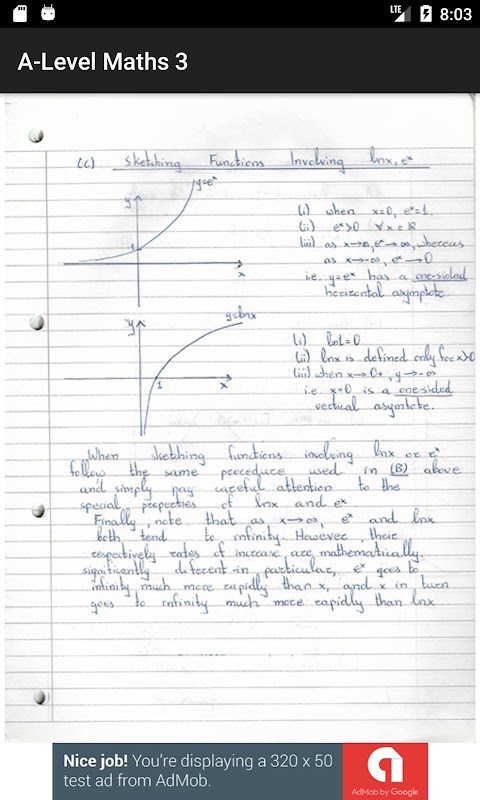 LTE 8:03
A-Level Maths 3
(c) Sketching Functions Involving lnx, eˣ
y=eˣ
y
1
x
(i) when x=0, eˣ=1.
(ii) eˣ>0 ∀x∈ℝ
(iii) as x→∞, eˣ→∞, whereas
as x→-∞, eˣ→0
i.e. y=eˣ has a one-sided
horizontal asymptote.
y=lnx
y
1
x
(i) ln1=0
(ii) lnx is defined only for x>0
(iii) when x→0+, y→-∞
i.e. x=0 is a one-sided
vertical asymtote.
When sketching functions involving lnx or eˣ
follow the same procedure used in (B) above
and simply pay careful attention to the
special properties of lnx and eˣ
Finally, note that as x→∞, eˣ and lnx
both tend to infinity. However, their
respectively rates of increase are mathematically.
significantly different-in particular, eˣ goes to
infinity much more rapidly than x, and x in turn
goes to infinity much more rapidly than lnx
Nice job! You're displaying a 320 x 50
test ad from AdMob.
AdMob by Google